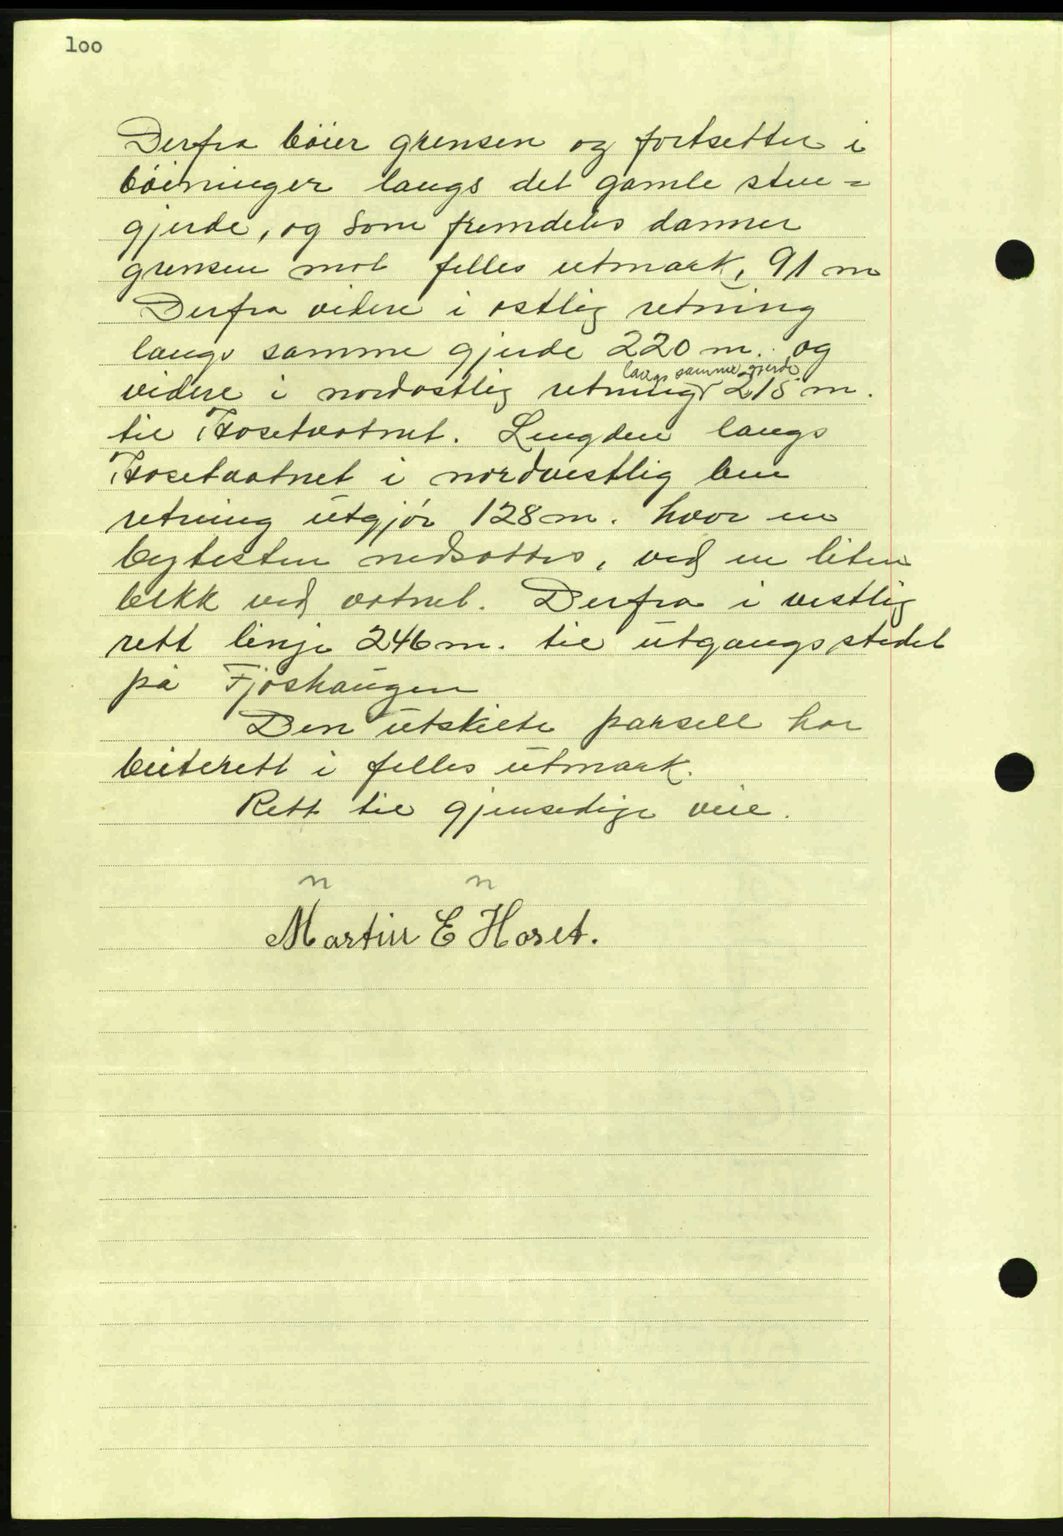 100
Derfra böier grensen og fortsetter i
böininger langs det gamle sten=
gjerde, og som fremdeles danner
grensen mot felles utmark, 91 m
Derfra videre i østlig retning
langs samme gjerde 220 m. og
langs samme gjerde
videre i nordøstlig retning 215 m.
til Hosetvatnet. Lengden langs
Hosetvatnet i nordvestlig ben
retning utgjør 128 m. hvor en
bytesten nedsattes, ved en liten
bekk ved vatnet. Derfra i vestlig
rett linje 246 m. til utgangsstedet
på Fjöshaugen
Den utskilte parsell har
beiterett i felles utmark.
Rett til gjensedige veie.
n n
Martin E Hoset.